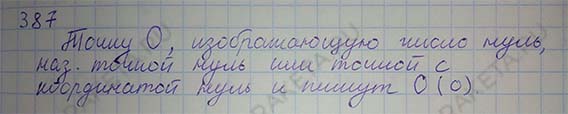 387
Точку О, изображающую число нуль,
наз. точкой нуль или точкой с
координатой нуль и пишут О(о).